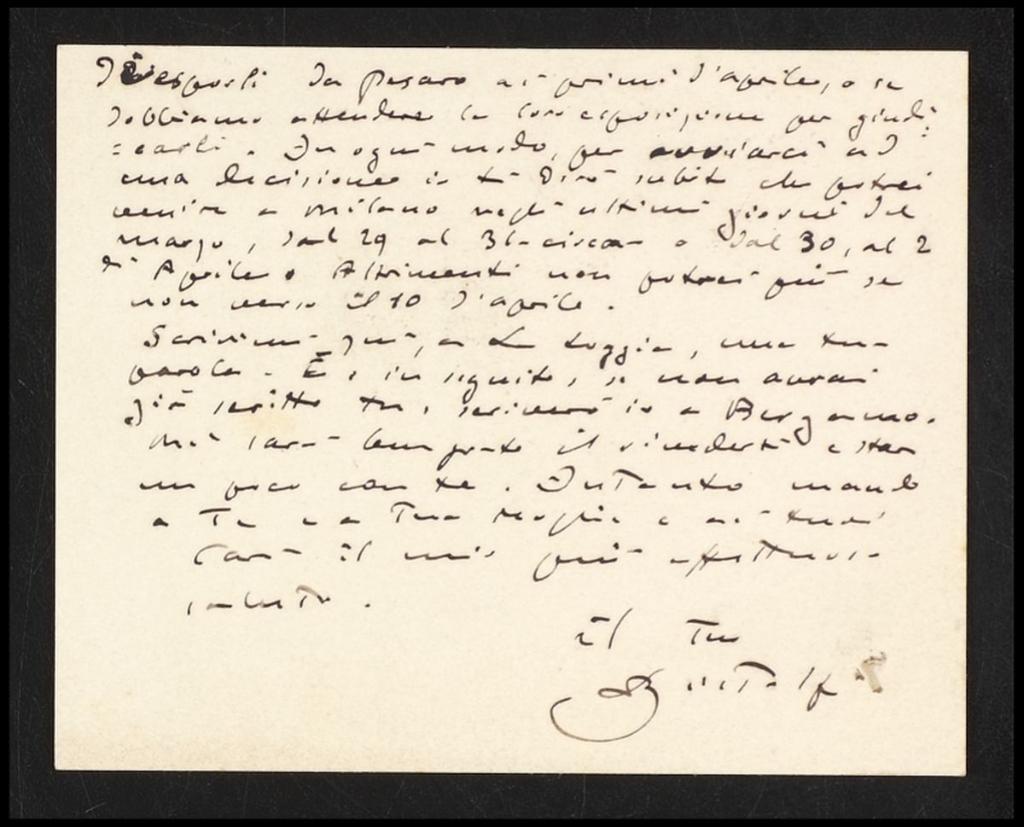 da Pesaro ai primi d'aprile, o se
dobbiamo attendere la loro esposizione per giudi=
=carli. In ogni modo, per avviarci ad
una decisione io ti dirò subito che potrei
venire a Milano negli ultimi giorni del
marzo, dal 29 al 31 circa o dal 30, al 2
di Aprile. Altrimenti non potrei più se
non verso il 10 d'aprile.
Scrivimi qui, a La Loggia, una tua
parola. E, in seguito, se non avrai
già scritto tu, scriverò io a Bergamo.
Mi sarà ben grato il rivederti e star
un poco con te. Intanto mando
a Te e a Tua Moglie e ai tuoi
Cari il mio più affettuoso
saluto.
Il Tuo